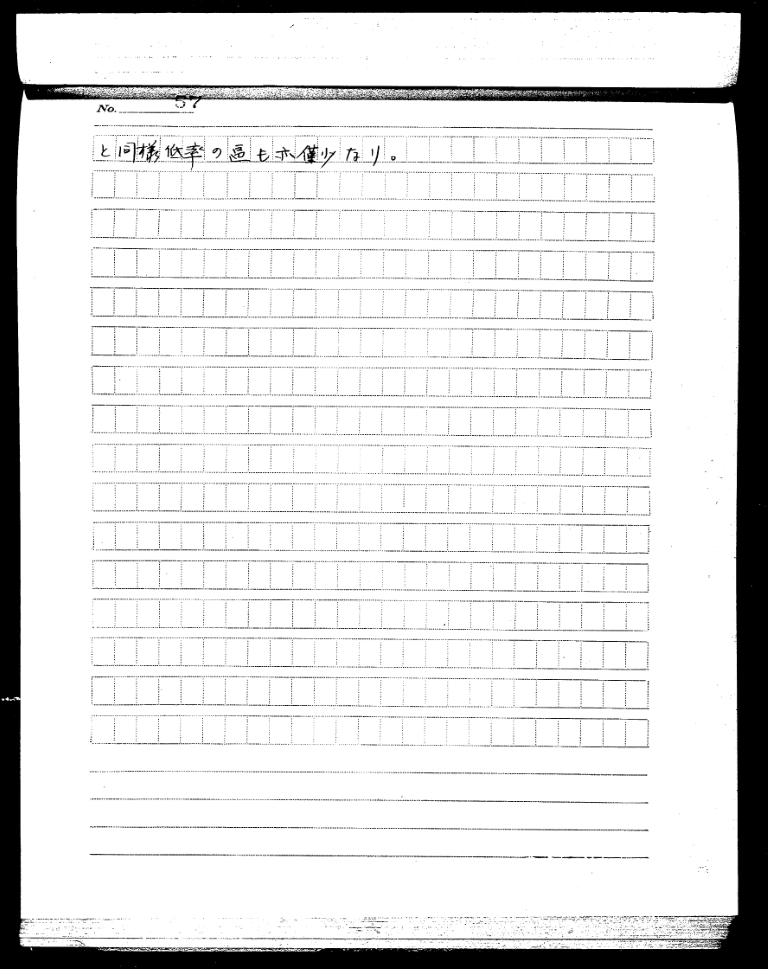 No. 57
と同様低率の區も亦僅少なり。